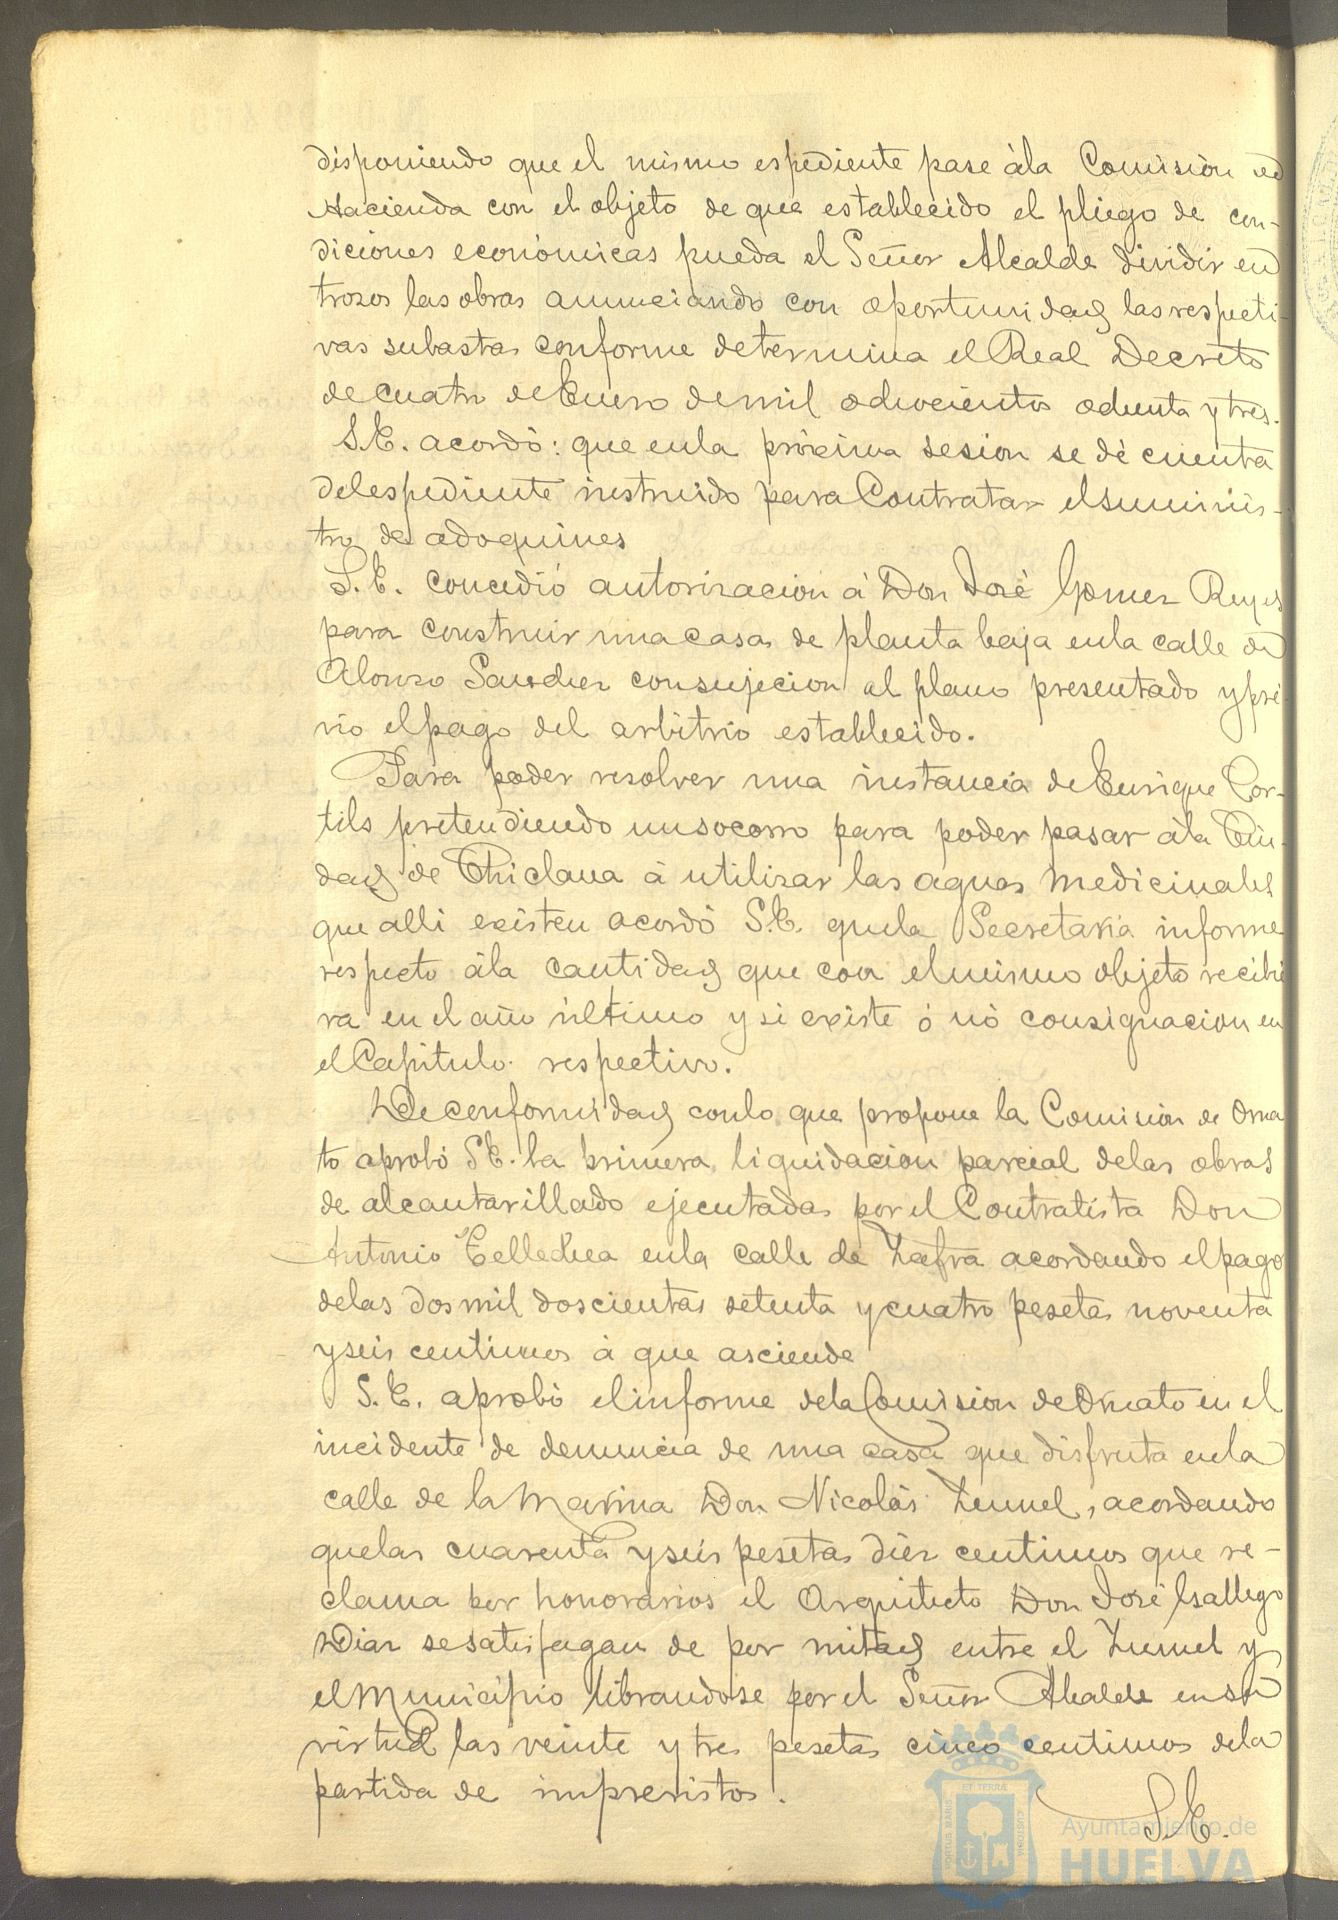 disponiendo que el mismo espediente pase àla Comisión de
Hacienda con el objeto de que establecido el pliego de con-
diciones económicas pueda el Señor Alcalde dividir en
trozos las obras anunciando con oportunidad las respecti-
vas subastas conforme determina el Real Decreto
de cuatro de Enero de mil ochocientos ochenta y tres.
S.E. acordó: que enla próxima sesion se dé cuenta
delespediente instruido para Contratar elsuminis-
tro de adoquines
S.E. concedió autorizacion á Don José Gomez Reyes
para construir unacasa de planta baja enla calle de
Alonso Sanchez consujecion al plano presentado y pré
vio elpago del arbitrio establecido.
Para poder resolver una instancia de Enrique Cor-
tils pretendiendo unsocorro para poder pasar àla Ciu-
dad de Chiclana á utilizar las aguas medicinales
que alli existen acordó S.E. quela Secretaria informe
respecto àla cantidad que con elmismo objeto recibie
ra en el año último y si existe ó nó consignacion en
el Capítulo respectivo.
De conformidad conlo que propone la Comision de Orna
to aprobó S.E. la primera liquidacion parcial delas obras
de alcantarillado ejecutadas por el Contratista Don
Antonio Tellechea enla calle de Zafra acordando elpago
delas dosmil doscientas setenta y cuatro pesetas noventa
yseis centimos á que asciende
S.E. aprobó elinforme dela Comision de Ornato en el
incidente de denuncia de una casa que disfruta enla
calle de la Marina Don Nicolás Zunnel, acordando
quelas cuarenta yseis pesetas diez centimos que re-
clama por honorarios el Arquitecto Don José Gallego
Diaz sesatisfagan de por mitad entre el Zunnel y
el Municipio librandose por el Señor Alcalde en su
virtud las veinte y tres pesetas cinco centimos dela
partida de imprevistos.
S.E.
PORTUS MARIS ET TERRÆ CUSTODIA
Ayuntamiento de
HUELVA